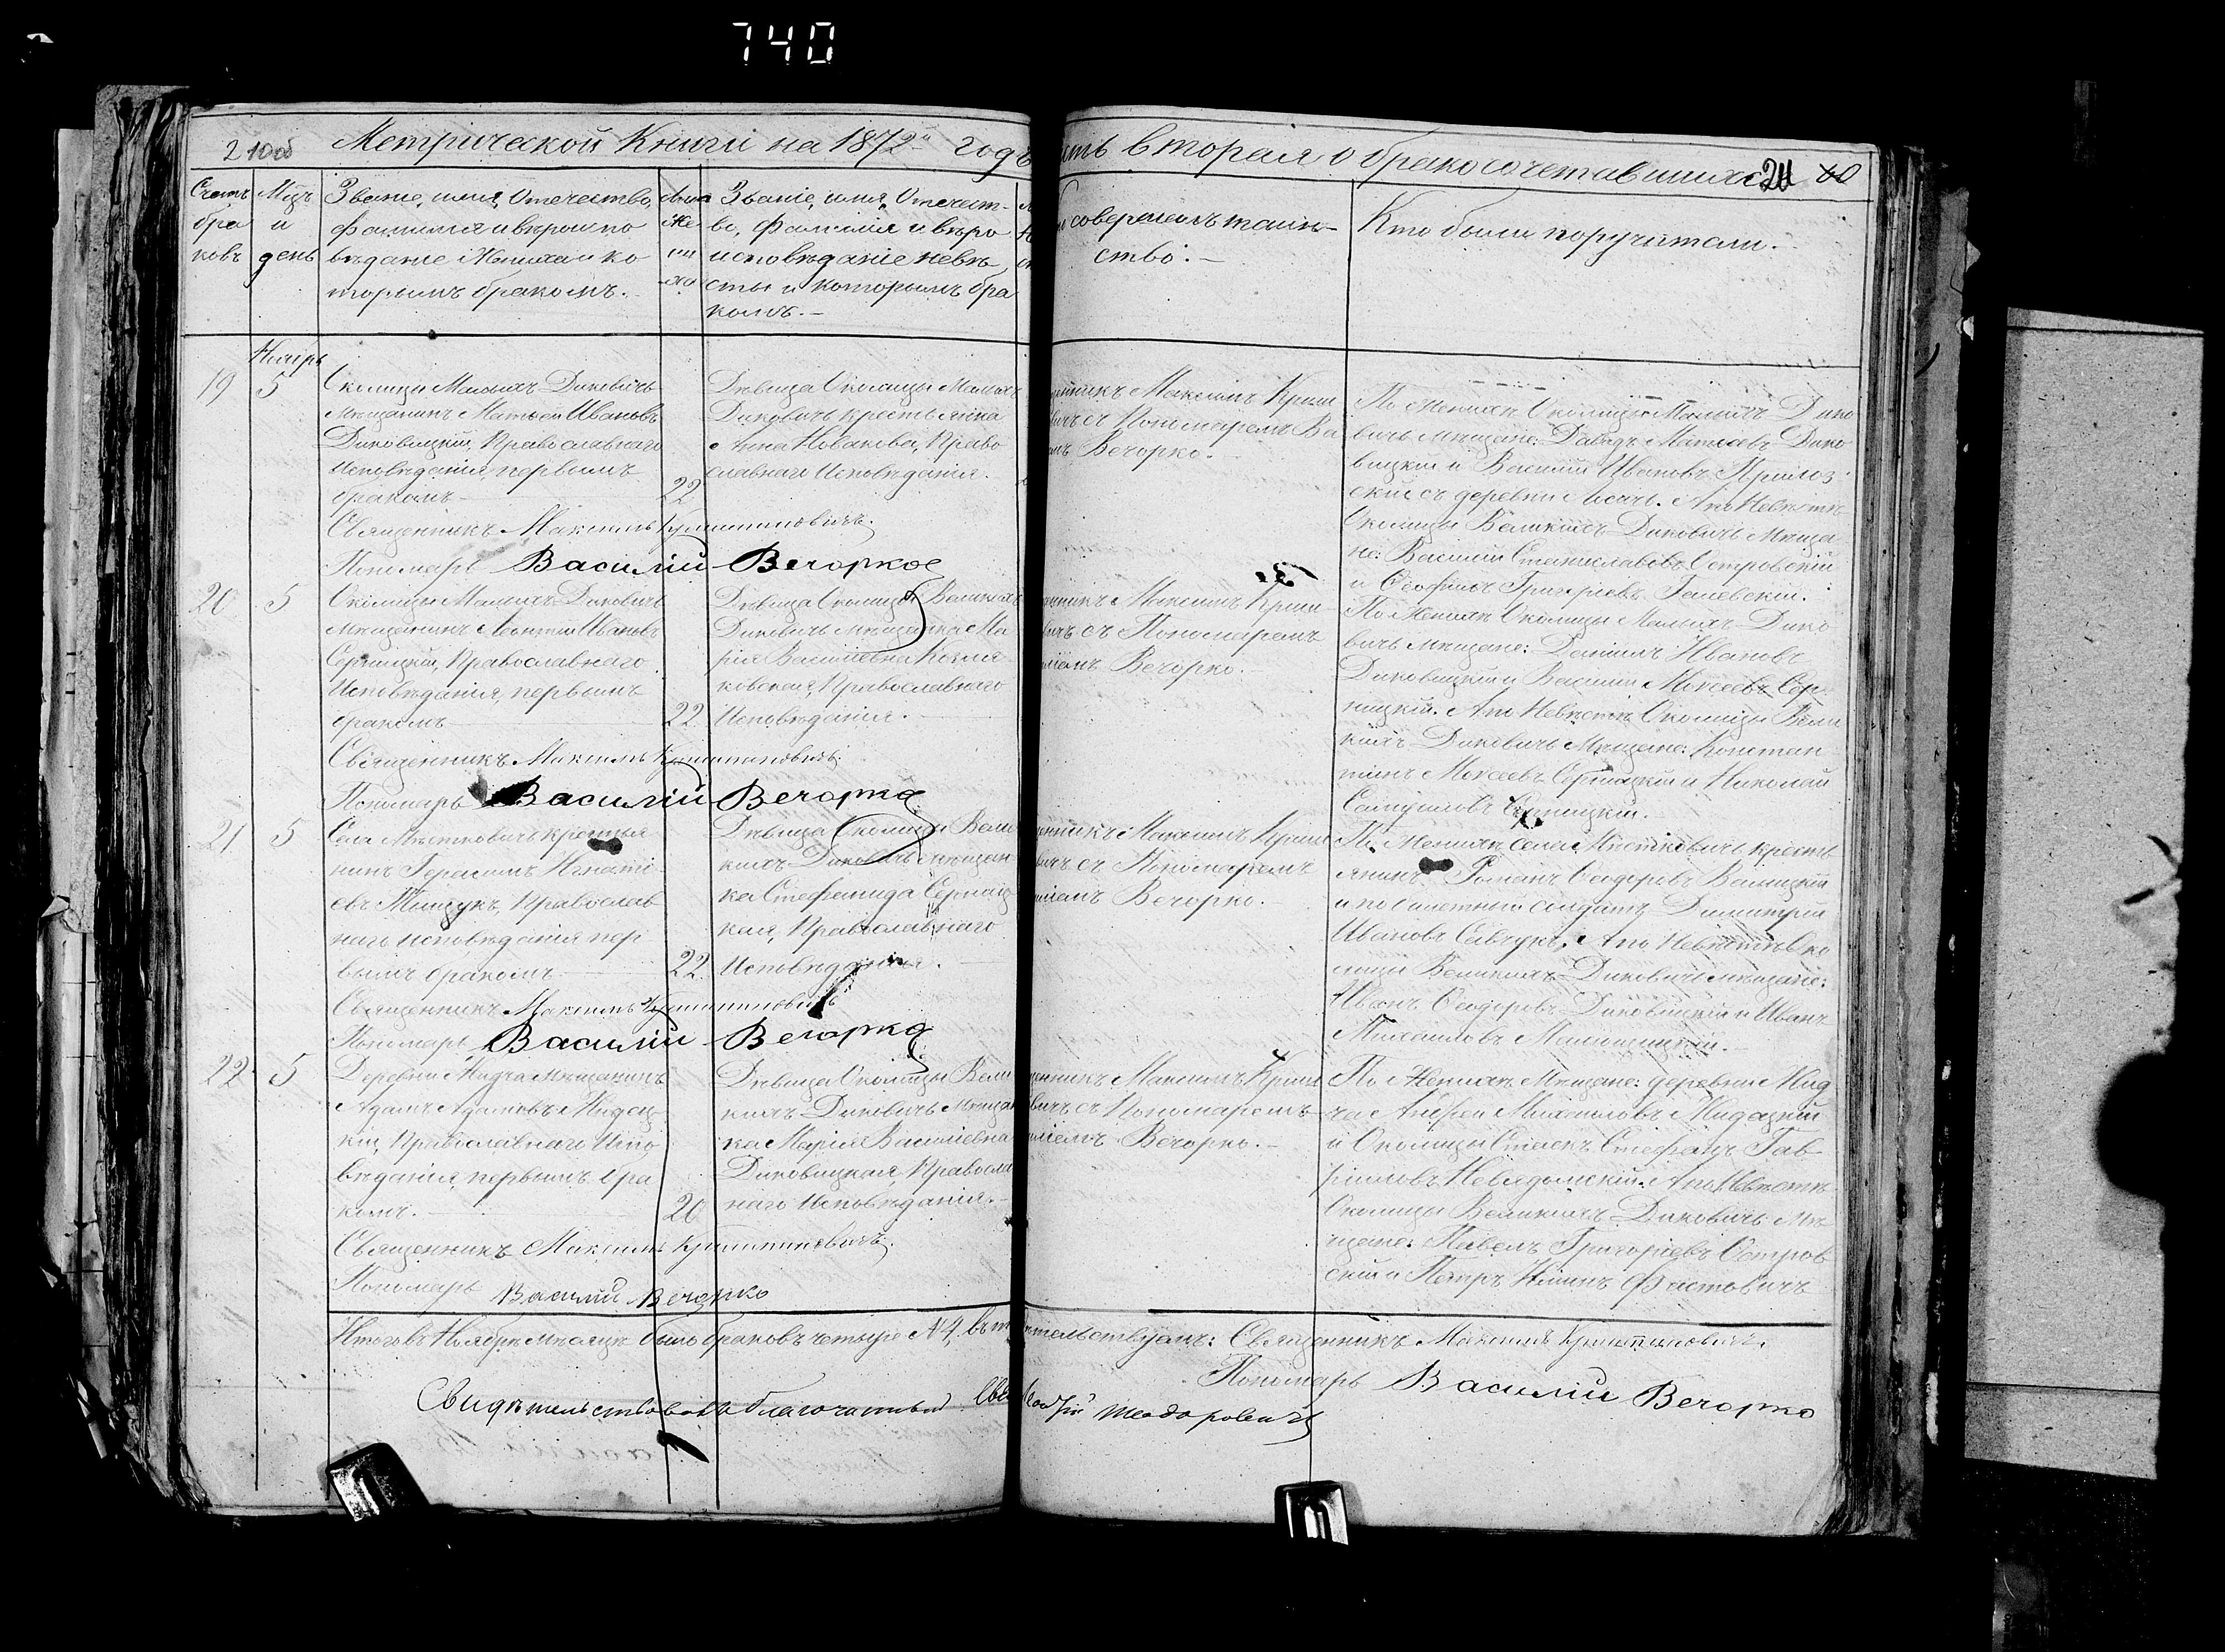 740
210об Метрической Книги на 1872й годъ
сть вторая о бракосочетавшихся 211
Счетъ браковъ
Мцъ и день
Званіе, имя, Отечество,
фамилія и вѣроиспо
вѣданіе Жениха и ко
торымъ бракомъ.
Званіе, имя, Отечест-
во, фамилія и вѣро
исповѣданіе невѣ
сты и которымъ бра
комъ.
совершалъ таин-
ство.
Кто были поручители.
Ноябрь
19 5
Околицы Малыхъ Диковичь
мѣщанинъ Матѳей Ивановъ
Диковицкій, Православнаго
Исповѣданія, первымъ
бракомъ
22
Дѣвица Околицы Малыхъ
Диковичь крестьянка
Анна Новакова, Право
славнаго Исповѣданія.
Максимъ Криш
съ Пономаремъ Ва
Вечорко.
По Женихѣ Околицы Малыхъ Дико
вичь мѣщане: Давидъ Матѳеевъ Дико
вицкій и Василій Ивановъ
скій съ деревни А по Невѣстѣ
Околицы Великихъ Диковичь мѣща
не: Василій Станиславовъ Островскій
и Ѳеофилъ Григорьевъ
Священникъ Максимъ Криштиновичъ.
Пономарь Василій Вечорко
20 5
Околицы Малыхъ Диковичь
мѣщанинъ Леонтій Ивановъ
Серницкій, Православнаго
Исповѣданія, первымъ
бракомъ
22
Дѣвица Околицы Великихъ
Диковичь мѣщанка Ма
рія Василіевна Козля
ковская, Православнаго
Исповѣданія.
Максимъ Криш
съ Пономаремъ
Вечорко.
По Женихѣ Околицы Малыхъ Дико
вичь мѣщане: Даніилъ Ивановъ
Диковицкій и Василій Моисеевъ Сер
ницкій. А по Невѣстѣ Околицы Вели
кихъ Диковичь Мѣщане: Констан
тинъ Моисеевъ Серницкій и Николай
Самуиловъ Серницкій.
Священникъ Максимъ Криштиновичъ.
Пономарь Василій Вечорко
21 5
Села Мѣстковичь крестья
нинъ Герасимъ Игнаті
евъ Мищукъ, Православ
наго исповѣданія пер
вымъ бракомъ
22
Дѣвица Околицы Вели
кихъ Диковичь мѣщан
ка Стефанида Серниц
кая, Православнаго
Исповѣданія.
Максимъ Криш
съ Пономаремъ
Вечорко.
По Женихѣ Села Мѣстковичь кресть
янинъ Романъ Ѳеодоровъ
и солдатъ Димитрій
Ивановъ Савчукъ. А по Невѣстѣ Око
лицы Великихъ Диковичь мѣщане:
Иванъ Ѳеодоровъ Диковицкій и Иванъ
Михаиловъ
Священникъ Максимъ Криштиновичъ
Пономарь Василій Вечорко
22 5
Деревни Жидча мѣщанинъ
Адамъ Адамовъ Жидец-
кій, Православнаго Испо
вѣданія, первымъ бра
комъ.
20
Дѣвица Околицы Вели
кихъ Диковичь Мѣщан
ка Марія Василіевна
Диковицкая, Правосла
наго Исповѣданія.
Максимъ Криш
съ Пономаремъ
Вечорко.
По Женихѣ Мѣщане: деревни Жид
ча Андрей Михаиловъ Жидецкій
и Околицы Стефанъ Гав
рииловъ Невядомскій. А по Невѣстѣ
Околицы Великихъ Диковичь Мѣ
щане: Павелъ Григорьевъ Остров
скій и Петръ Фастовичъ
Священникъ Максимъ Криштиновичъ.
Пономарь Василій Вечорко
Итого въ Ноябрѣ мѣсяцѣ было браковъ четыре №4, въ томъ
тельствуемъ: Священникъ Максимъ Криштиновичъ.
Пономарь Василій Вечорко
Свидѣтельствовалъ благочинный Ѳеодоровичъ